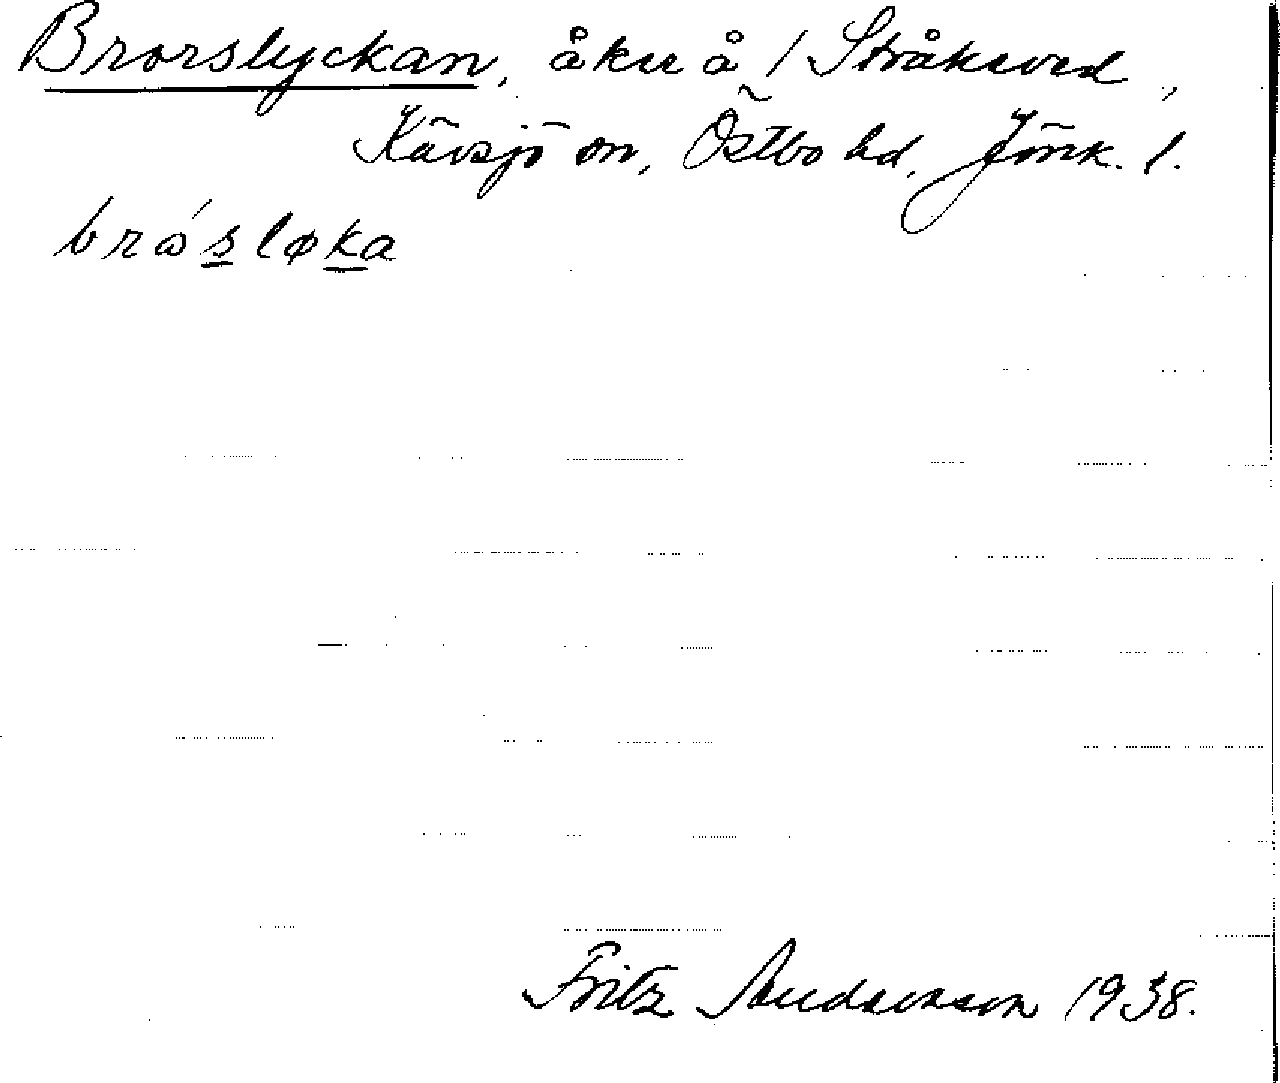 Brorslyckan, åker å / Stråkeved,
Kävsjö sn, Östbo hd, Jönk. l.
bró's̲løk̲a
Fritz Andersson 1938.